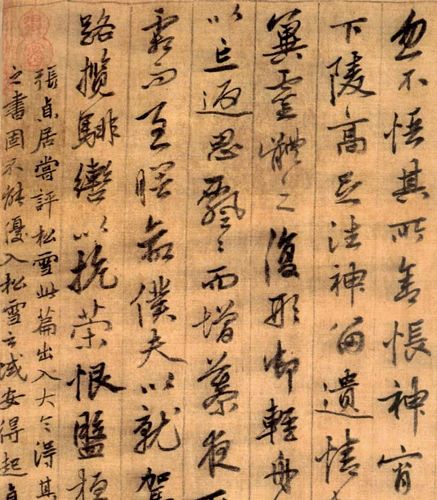 忽不悟其所舍悵神宵
下陵高足往神留遺情
冀靈體之復形御輕舟
以忘返思飄〻而增慕夜
霜而至曙命僕夫以就駕
路攬騑轡以抗策悵盤桓
張貞居嘗評松雪此篇出入大令得其
之書固不能優入松雪之域安得起貞